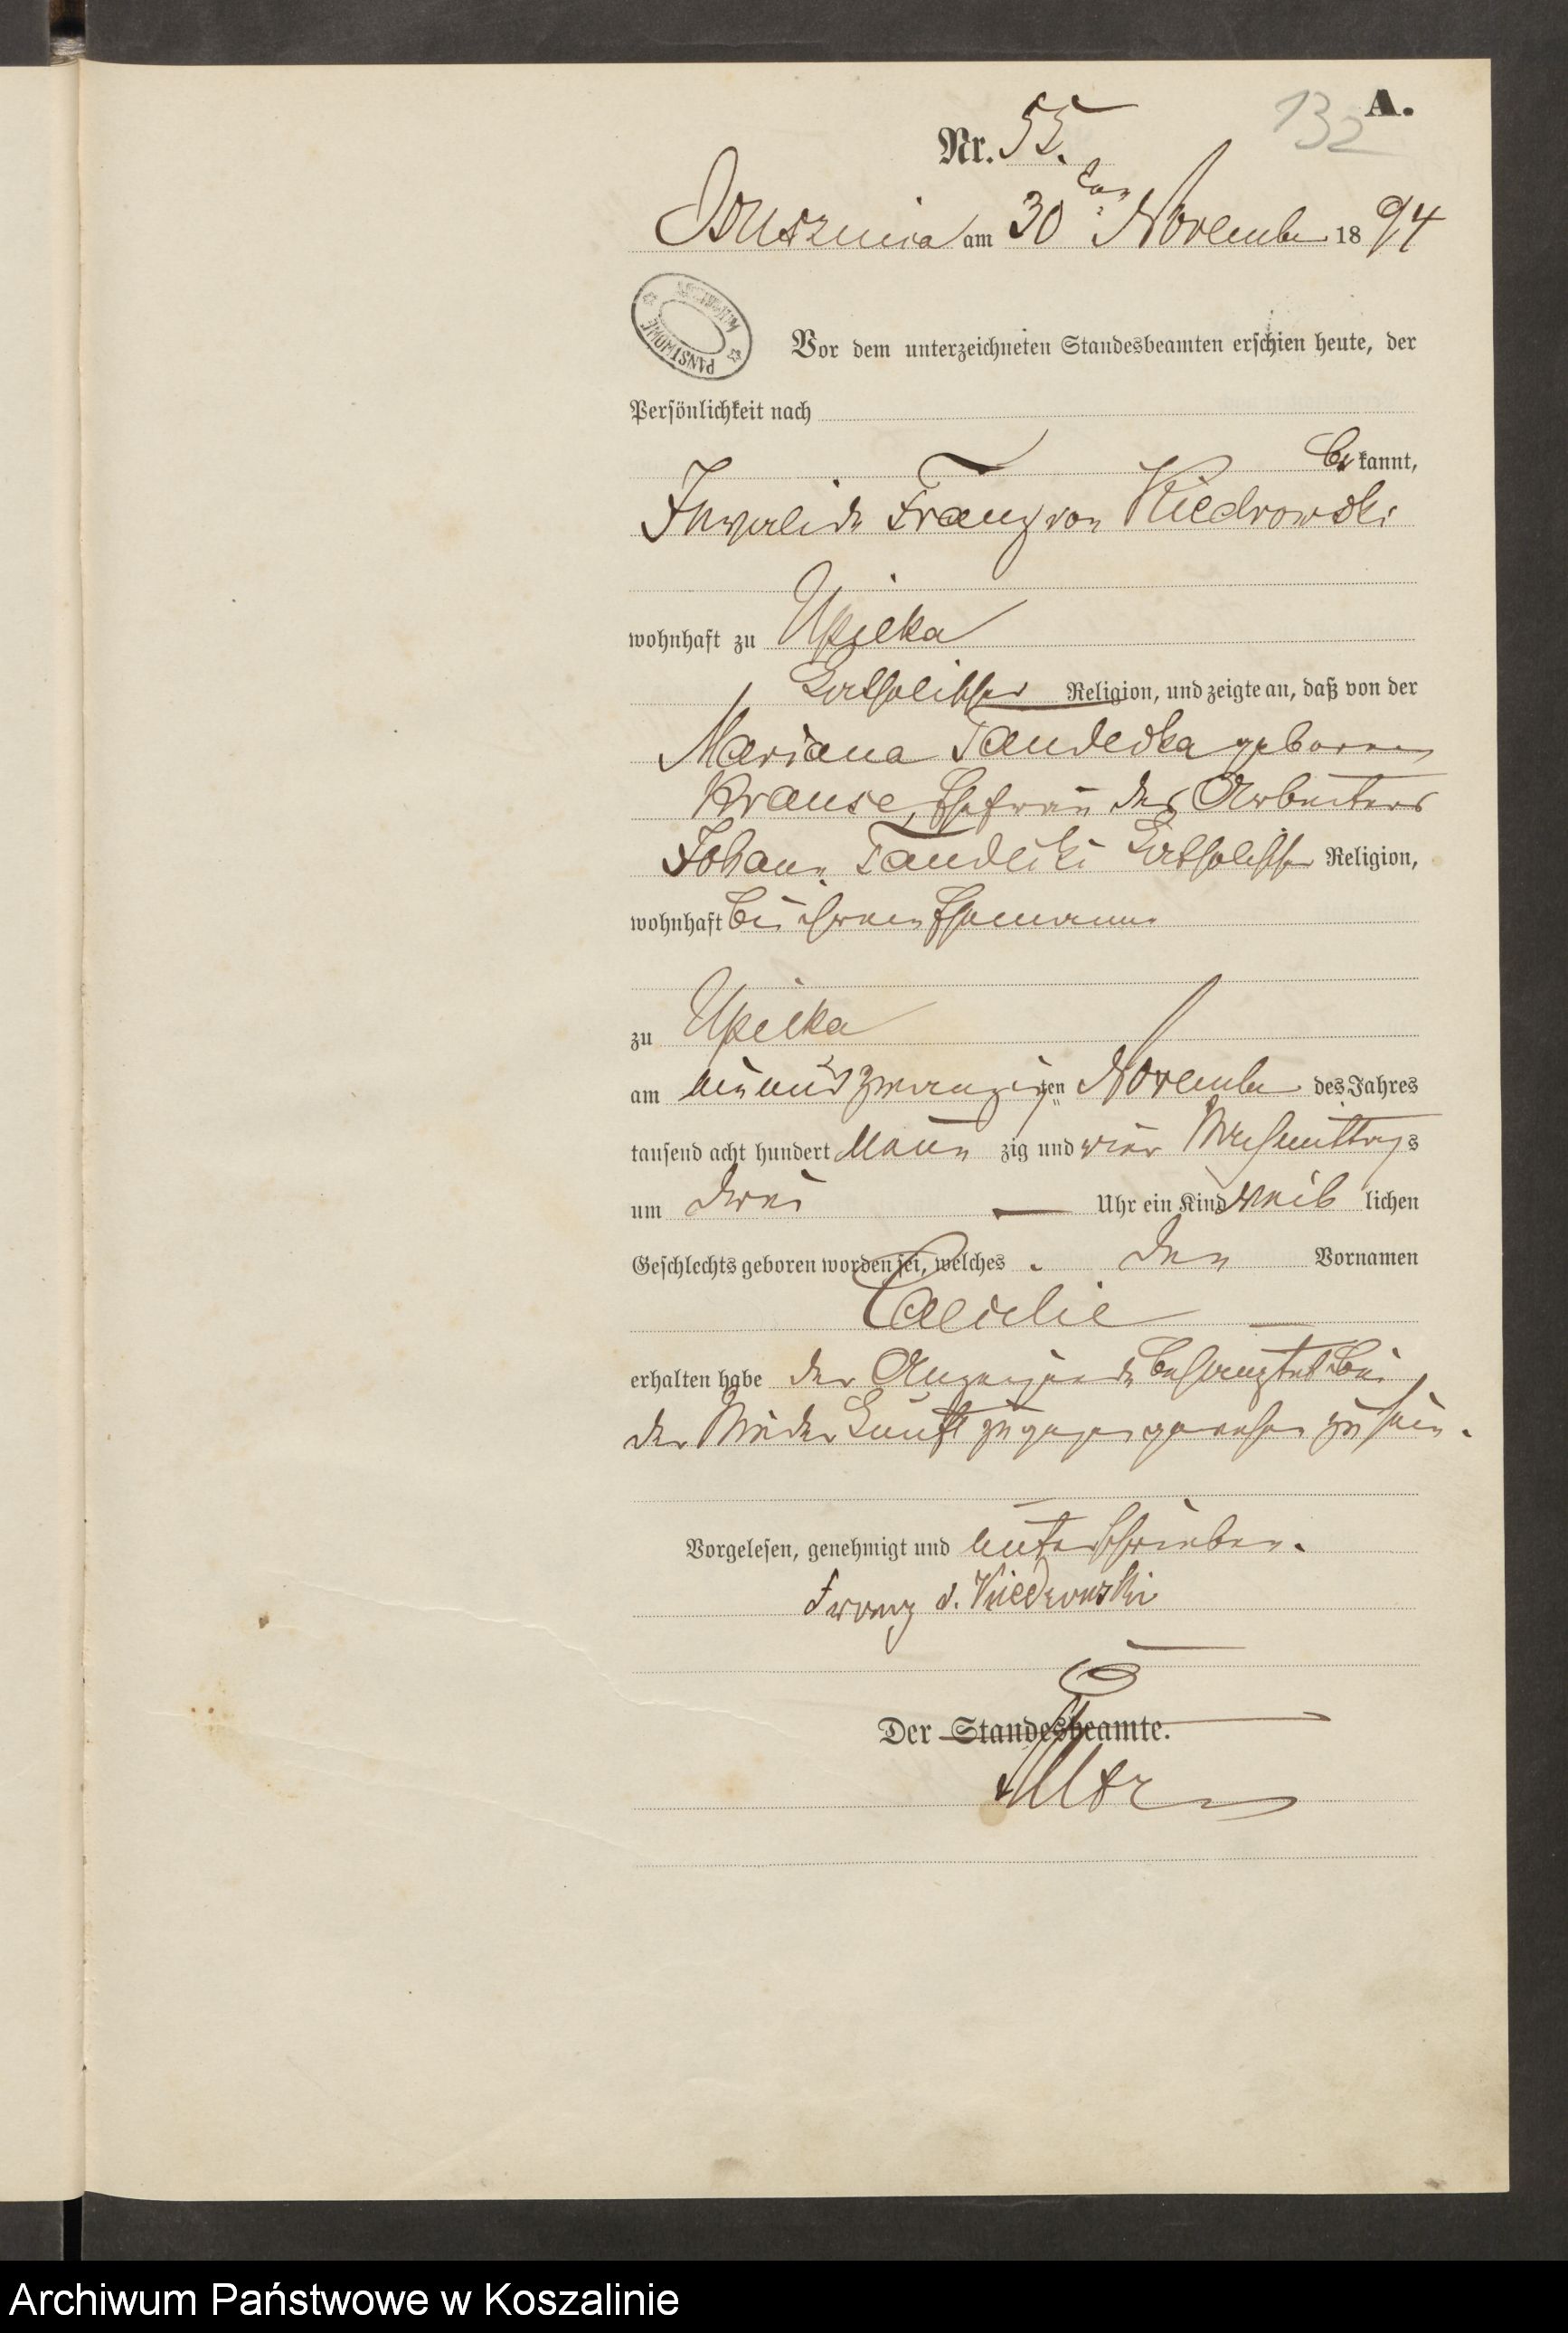 A.
132
Nr. 55.
Bruszniça am 30ten November 1894
PAŃSTWOWE ARCHIWUM
Vor dem unterzeichneten Standesbeamten erschien heute, der
Persönlichkeit nach
bekannt,
Invalide Franz von Kiedrowski
wohnhaft zu Upilka
katholischer Religion, und zeigte an, daß von der
Mariana Tandecka geborene
Krause, Ehefrau des Arbeiters
Johann Tandecki katholischer Religion,
wohnhaft bei ihrem Ehemanne
zu Upilka
am neunundzwanzigten November des Jahres
tausend acht hundert Neunzig und vier Nachmittags
um drei Uhr ein Kind weiblichen
Geschlechts geboren worden sei, welches den Vornamen
Caecilie
erhalten habe der Anzeigende behauptet bei
der Niederkunft zugegen gewesen zu sein.
Vorgelesen, genehmigt und unterschrieben.
Franz v. Kiedrowski
Der Standesbeamte.
Archiwum Państwowe w Koszalinie